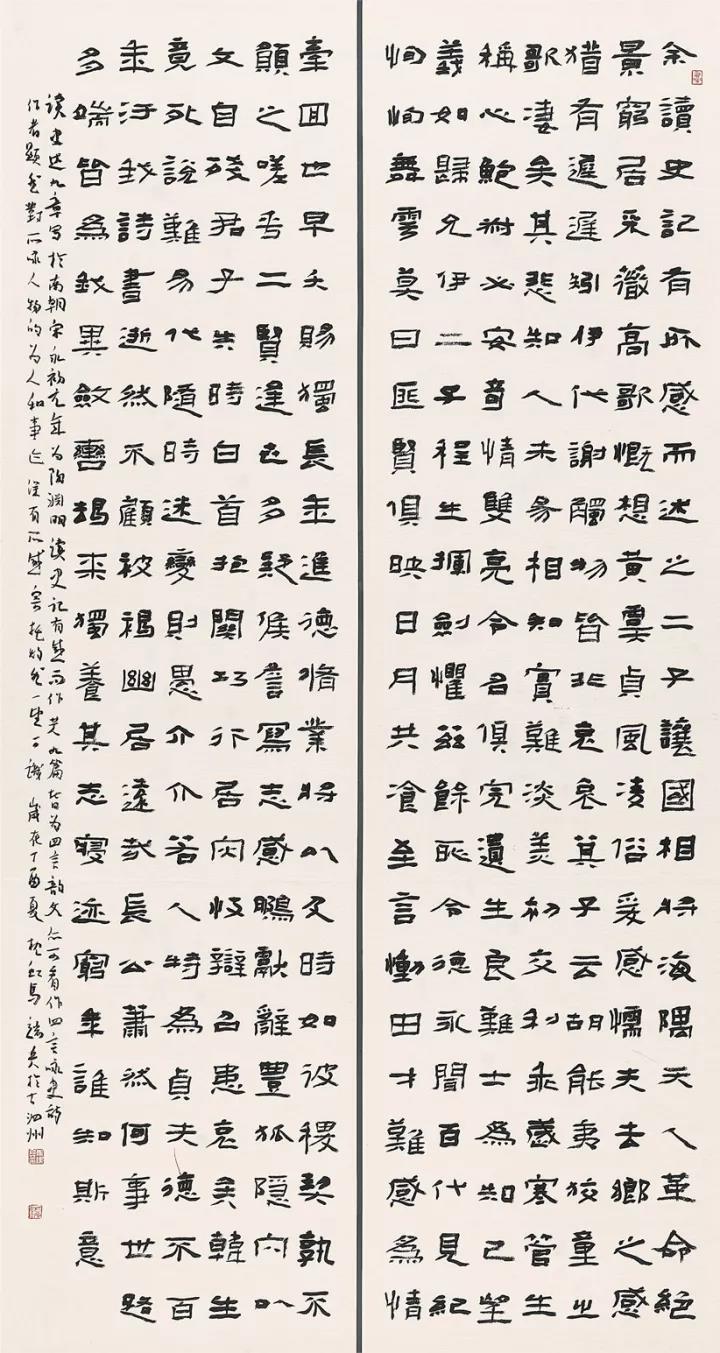 余讀史記有所感而述之二子讓國相將海隅天人革命絕
景窮居采薇高歌慨想黃虞貞風凌俗爰感懦夫去鄉之感
猶有遲遲矧伊代謝觸物皆非哀哀箕子云胡能夷狡童之
歌淒矣其悲知人未易相知實難淡美初交利乖歲寒管生
稱心鮑叔必安奇情雙亮令名俱完遺生良難士為知己望
義如歸允伊二子程生揮劍懼茲餘恥令德永聞百代見紀
恂恂舞雩莫曰匪賢俱映日月共飡至言慟由才難感為情
牽回也早夭賜獨長年進德脩業將以及時如彼稷契孰不
願之嗟乎二賢逢世多疑候詹寫志感鵩獻辭豐狐隱穴以
文自殘君子失時白首抱關巧行居災忮辯召患哀矣韓生
竟死說難易代隨時迷變則愚介介若人特為貞夫德不百
年汙我詩書逝然不顧被褐幽居遠哉長公蕭然何事世路
多端皆為我異斂轡朅來獨養其志寢迹窮年誰知斯意
读史述九章写於南朝宋永初元年为陶渊明读史记有感而作其九篇皆为四言韵文亦可看作四言咏史诗
作者题對所咏人物的为人和事迹深有所感寄托灼然一望可識 歲在丁酉夏 於古泗州